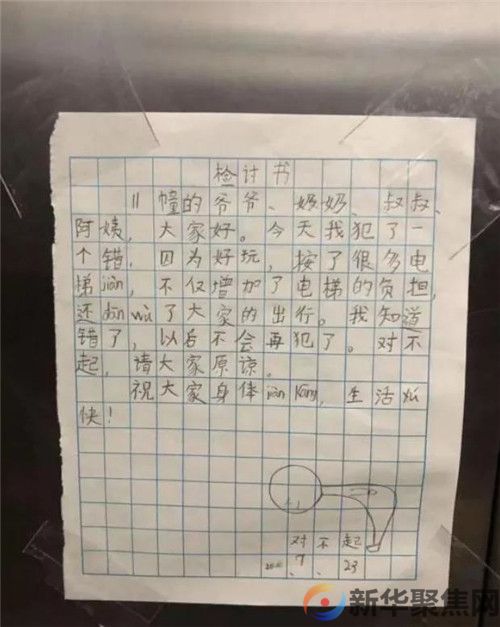 检讨书
11幢的爷爷、奶奶、叔叔、
阿姨,大家好。今天我犯了一
个错,因为好玩,按了很多电
梯jiàn,不仅增加了电梯的负担,
还dān wù了大家的出行。我知道
错了,以后不会再犯了。对不
起,请大家原谅。
祝大家身体jiàn kāng,生活愉
快!
对不起
7、23
新华聚焦网